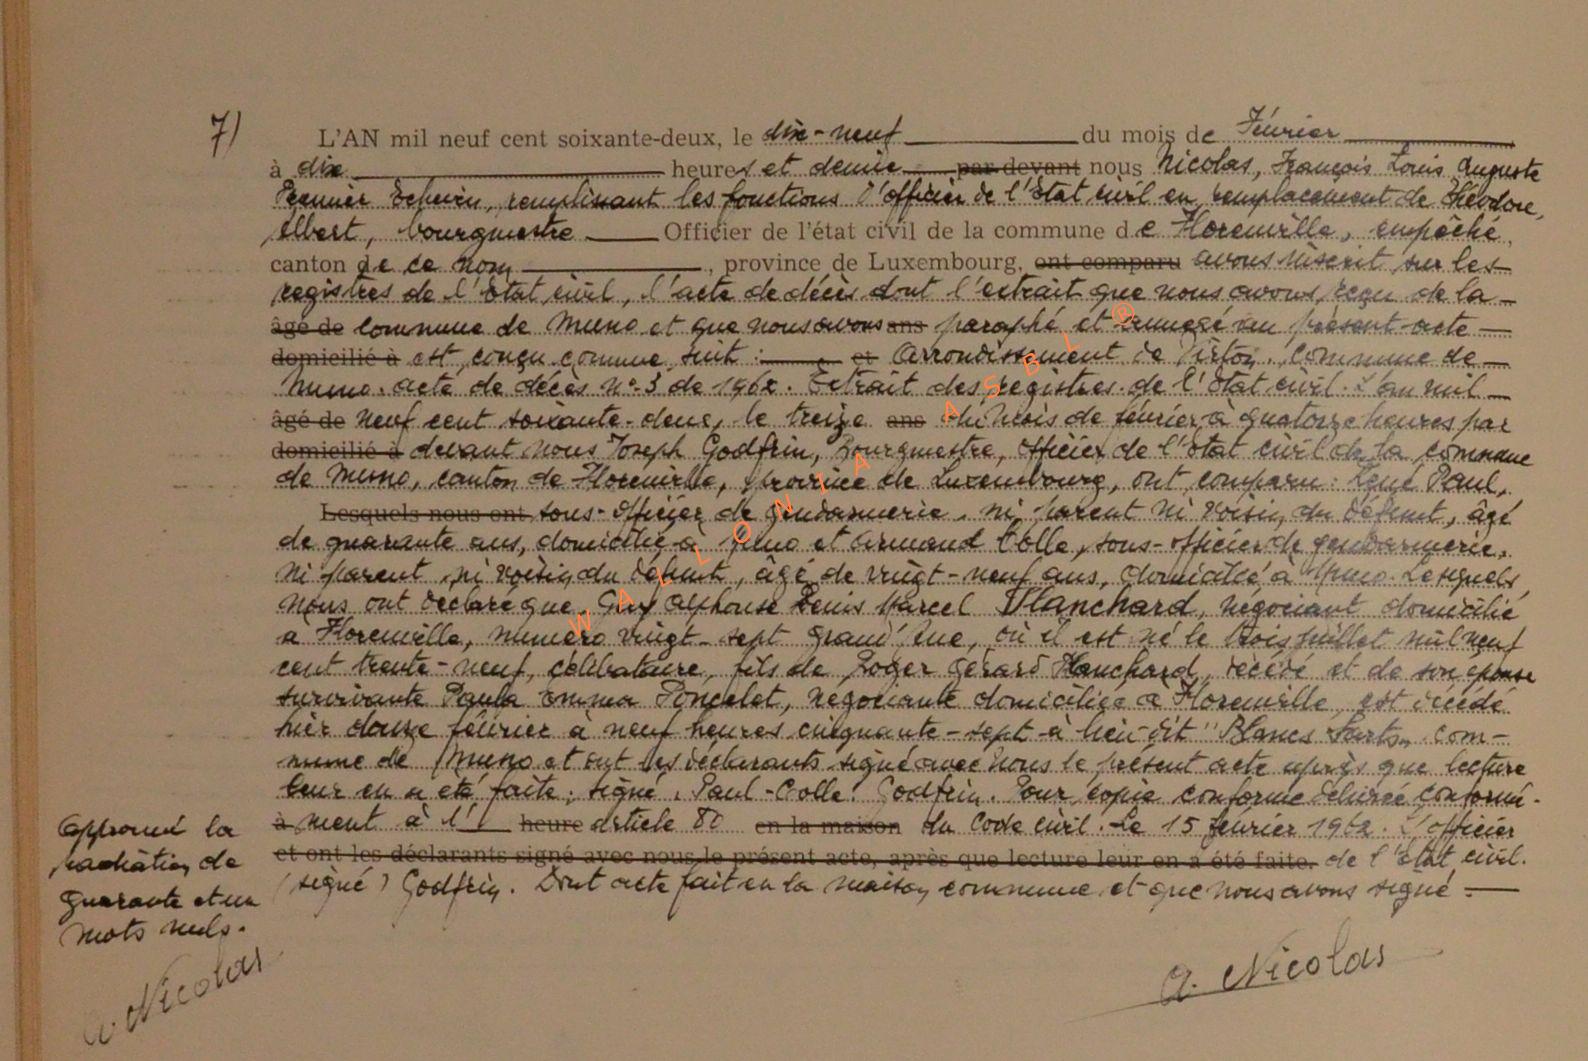 7)
L'AN mil neuf cent soixante-deux, le dix-neuf du mois de Février
à dix heures et demie par devant nous Nicolas, François Louis Auguste
Premier Echevin, remplissant les fonctions d'officier de l'état civil en remplacement de Théodore,
Albert, bourgmestre Officier de l'état civil de la commune de Florenville, empêché,
canton de ce nom, province de Luxembourg, ont comparu avons inscrit sur les
registres de l'état civil, l'acte de décès dont l'extrait que nous avons reçu de la
âgé de commune de Muno et que nous avons ans paraphé et annexé au présent acte
domicilié à est conçu comme suit : et Arrondissement de Virton. Commune de
Muno. acte de décès n° 3 de 1962. Extrait des registres de l'état civil. L'an mil
âgé de neuf cent soixante-deux, le treize ans du mois de février à quatorze heures par
domicilié à devant nous Joseph Godfrin, Bourgmestre, officier de l'état civil de la commune
de Muno, canton de Florenville, province de Luxembourg, ont comparu : René Paul,
Lesquels nous ont sous-officier de gendarmerie, ni parent ni voisin du défunt, âgé
de quarante ans, domicilié à Muno et Armand Colle, sous-officier de gendarmerie,
ni parent ni voisin du défunt, âgé de vingt-neuf ans, domicilié à Muno. Lesquels
nous ont déclaré que Guy Alphonse Denis Marcel Planchard, négociant domicilié
à Florenville, numéro vingt-sept Grand'Rue, où il est né le trois juillet mil neuf
cent trente-neuf, célibataire, fils de Roger Gérard Planchard, décédé et de son épouse
survivante Paula Emma Poncelet, négociante domiciliée à Florenville, est décédé
hier douze février à neuf heures cinquante-sept à lieu-dit "Blancs Sarts" com-
mune de Muno et ont les déclarants signé avec nous le présent acte après que lecture
leur en a été faite; signé. Paul-Colle. Godfrin. Pour copie conforme délivrée conformé-
à ment à l' heure article 80 en la maison du Code civil. Le 15 février 1962. L'officier
et ont les déclarants signé avec nous le présent acte, après que lecture leur en a été faite. de l'état civil.
(signé) Godfrin. Dont acte fait en la maison commune et que nous avons signé
Approuvé la
radiation de
quarante et un
mots nuls.
A. Nicolas
A. Nicolas
WALLONIA ASBL ®